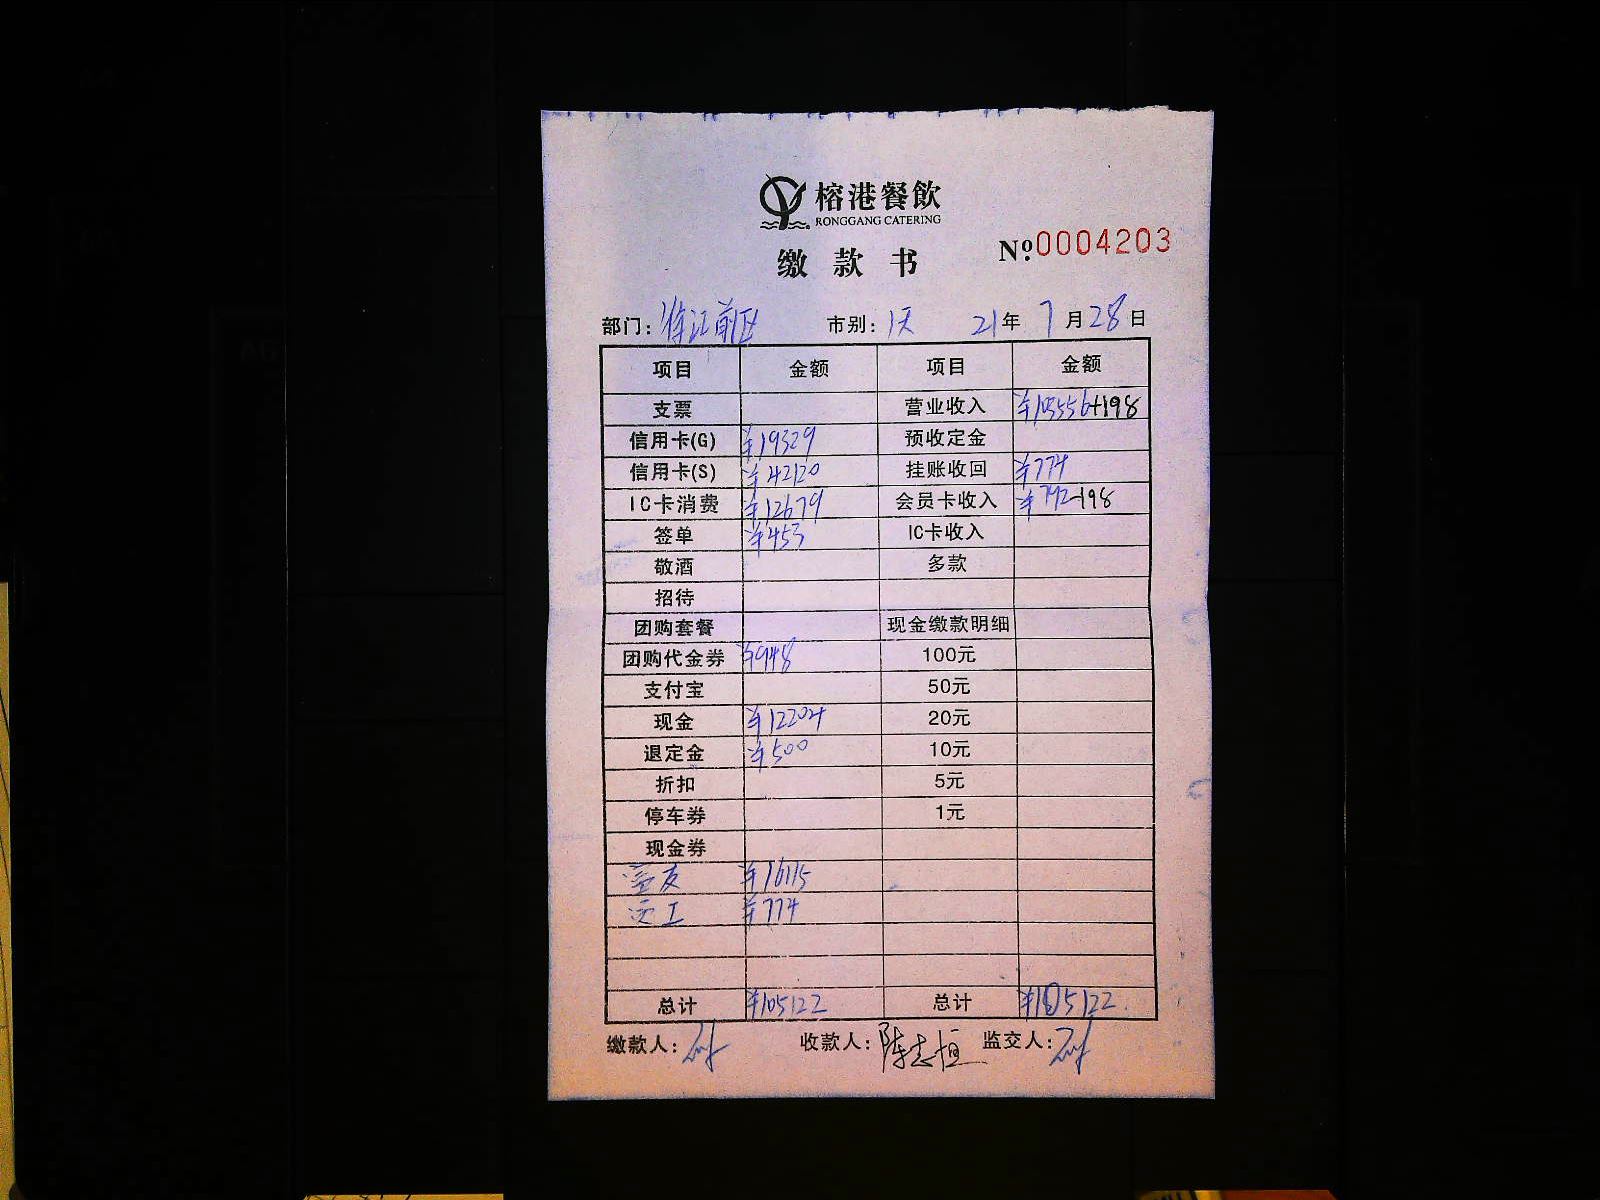 榕港餐飲
RONGGANG CATERING
缴款书 №0004203
部门: 徐汇前区 市别: 1天 21年 7月28日
项目 金额 项目 金额
支票 营业收入 ¥103556+198
信用卡(G) ¥19329 预收定金
信用卡(S) ¥42120 挂账收回 ¥774
IC卡消费 ¥12679 会员卡收入 ¥792-198
签单 ¥453 IC卡收入
敬酒 多款
招待
团购套餐 现金缴款明细
团购代金券 ¥948 100元
支付宝 50元
现金 ¥12204 20元
退定金 ¥500 10元
折扣 5元
停车券 1元
现金券
¥16115
员工 ¥774
总计 ¥105122 总计 ¥105122.
缴款人: 收款人: 陈志恒 监交人: